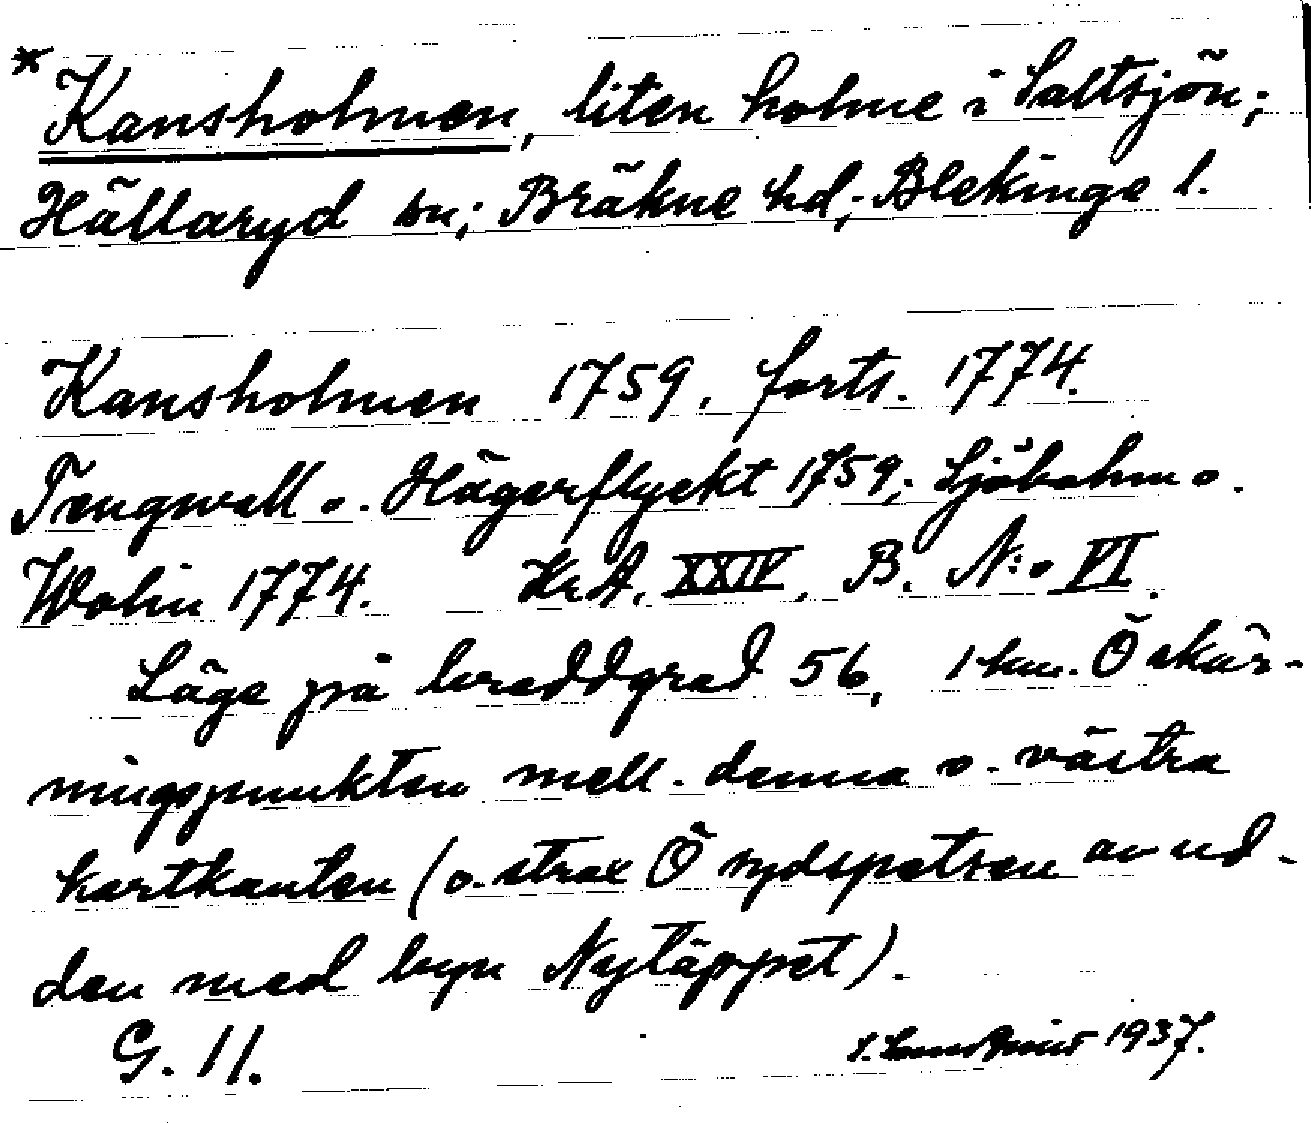 * Kansholmen, liten holme i Saltsjön;
Hällaryd sn; Bräkne hd; Blekinge l.
Kansholmen 1759, forts. 1774.
Tengwall o. Hägerflyckt 1759; Sjöbohm o.
Wolin 1774. Kr.A. XXIV, B. N:o VI.
Läge på breddgrad 56, 1 km. Ö skär-
ningspunkten mell. denna o. västra
kartkanten (o. strax Ö sydspetsen av ud-
den med byn Nytäppet).
G. 11. 1937.